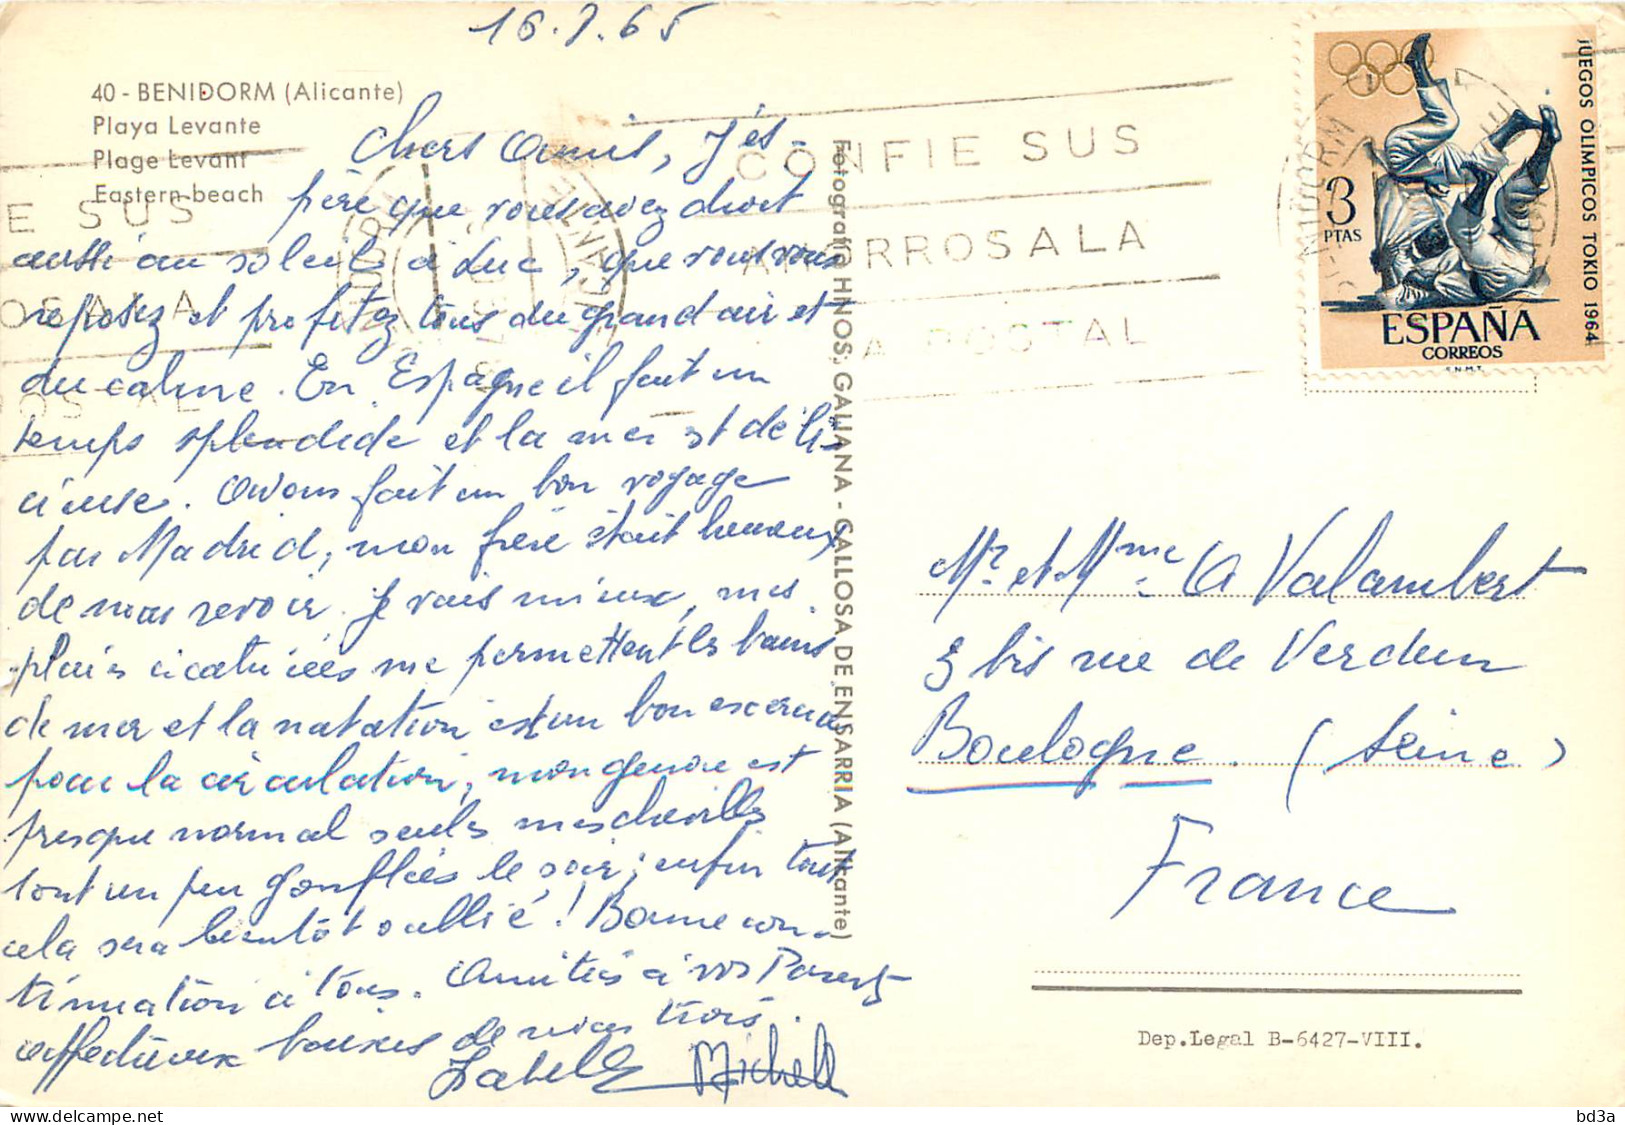 16.7.65
40 - BENIDORM (Alicante)
Playa Levante
Plage Levant
Eastern-beach
Chers Amis, J'es-
père que vous avez droit
aussi au soleil à Luc, que vous vous
reposez et profitez tous du grand air et
du calme. En Espagne il fait un
temps splendide et la mer est déli-
cieuse. Avons fait un bon voyage
par Madrid, mon frère était heureux
de nous revoir. Je vais mieux, mes
plaies cicatrisées me permettent les bains
de mer et la natation est un bon exercice
pour la circulation, mon genou est
presque normal seules mes chevilles
sont un peu gonflées le soir; enfin tout
cela sera bientôt oublié! Bonne con-
tinuation à tous. Amitiés à vos Parents
affectueux baisers de nous trois.
Isabelle Michell
Fotografia HNOS, GALIANA - CALLOSA DE ENSARRIA (Alicante)
CONFIE SUS
AHORROS A LA
A POSTAL
E SUS
OS A LA
POSTAL
BENIDORM
JUEGOS OLIMPICOS TOKIO 1964
3
PTAS
ESPAÑA
CORREOS
F.N.M.T.
Mr et Mme A Valambert
3 bis rue de Verdun
Boulogne. (Seine)
France
Dep.Legal B-6427-VIII.
bd3a